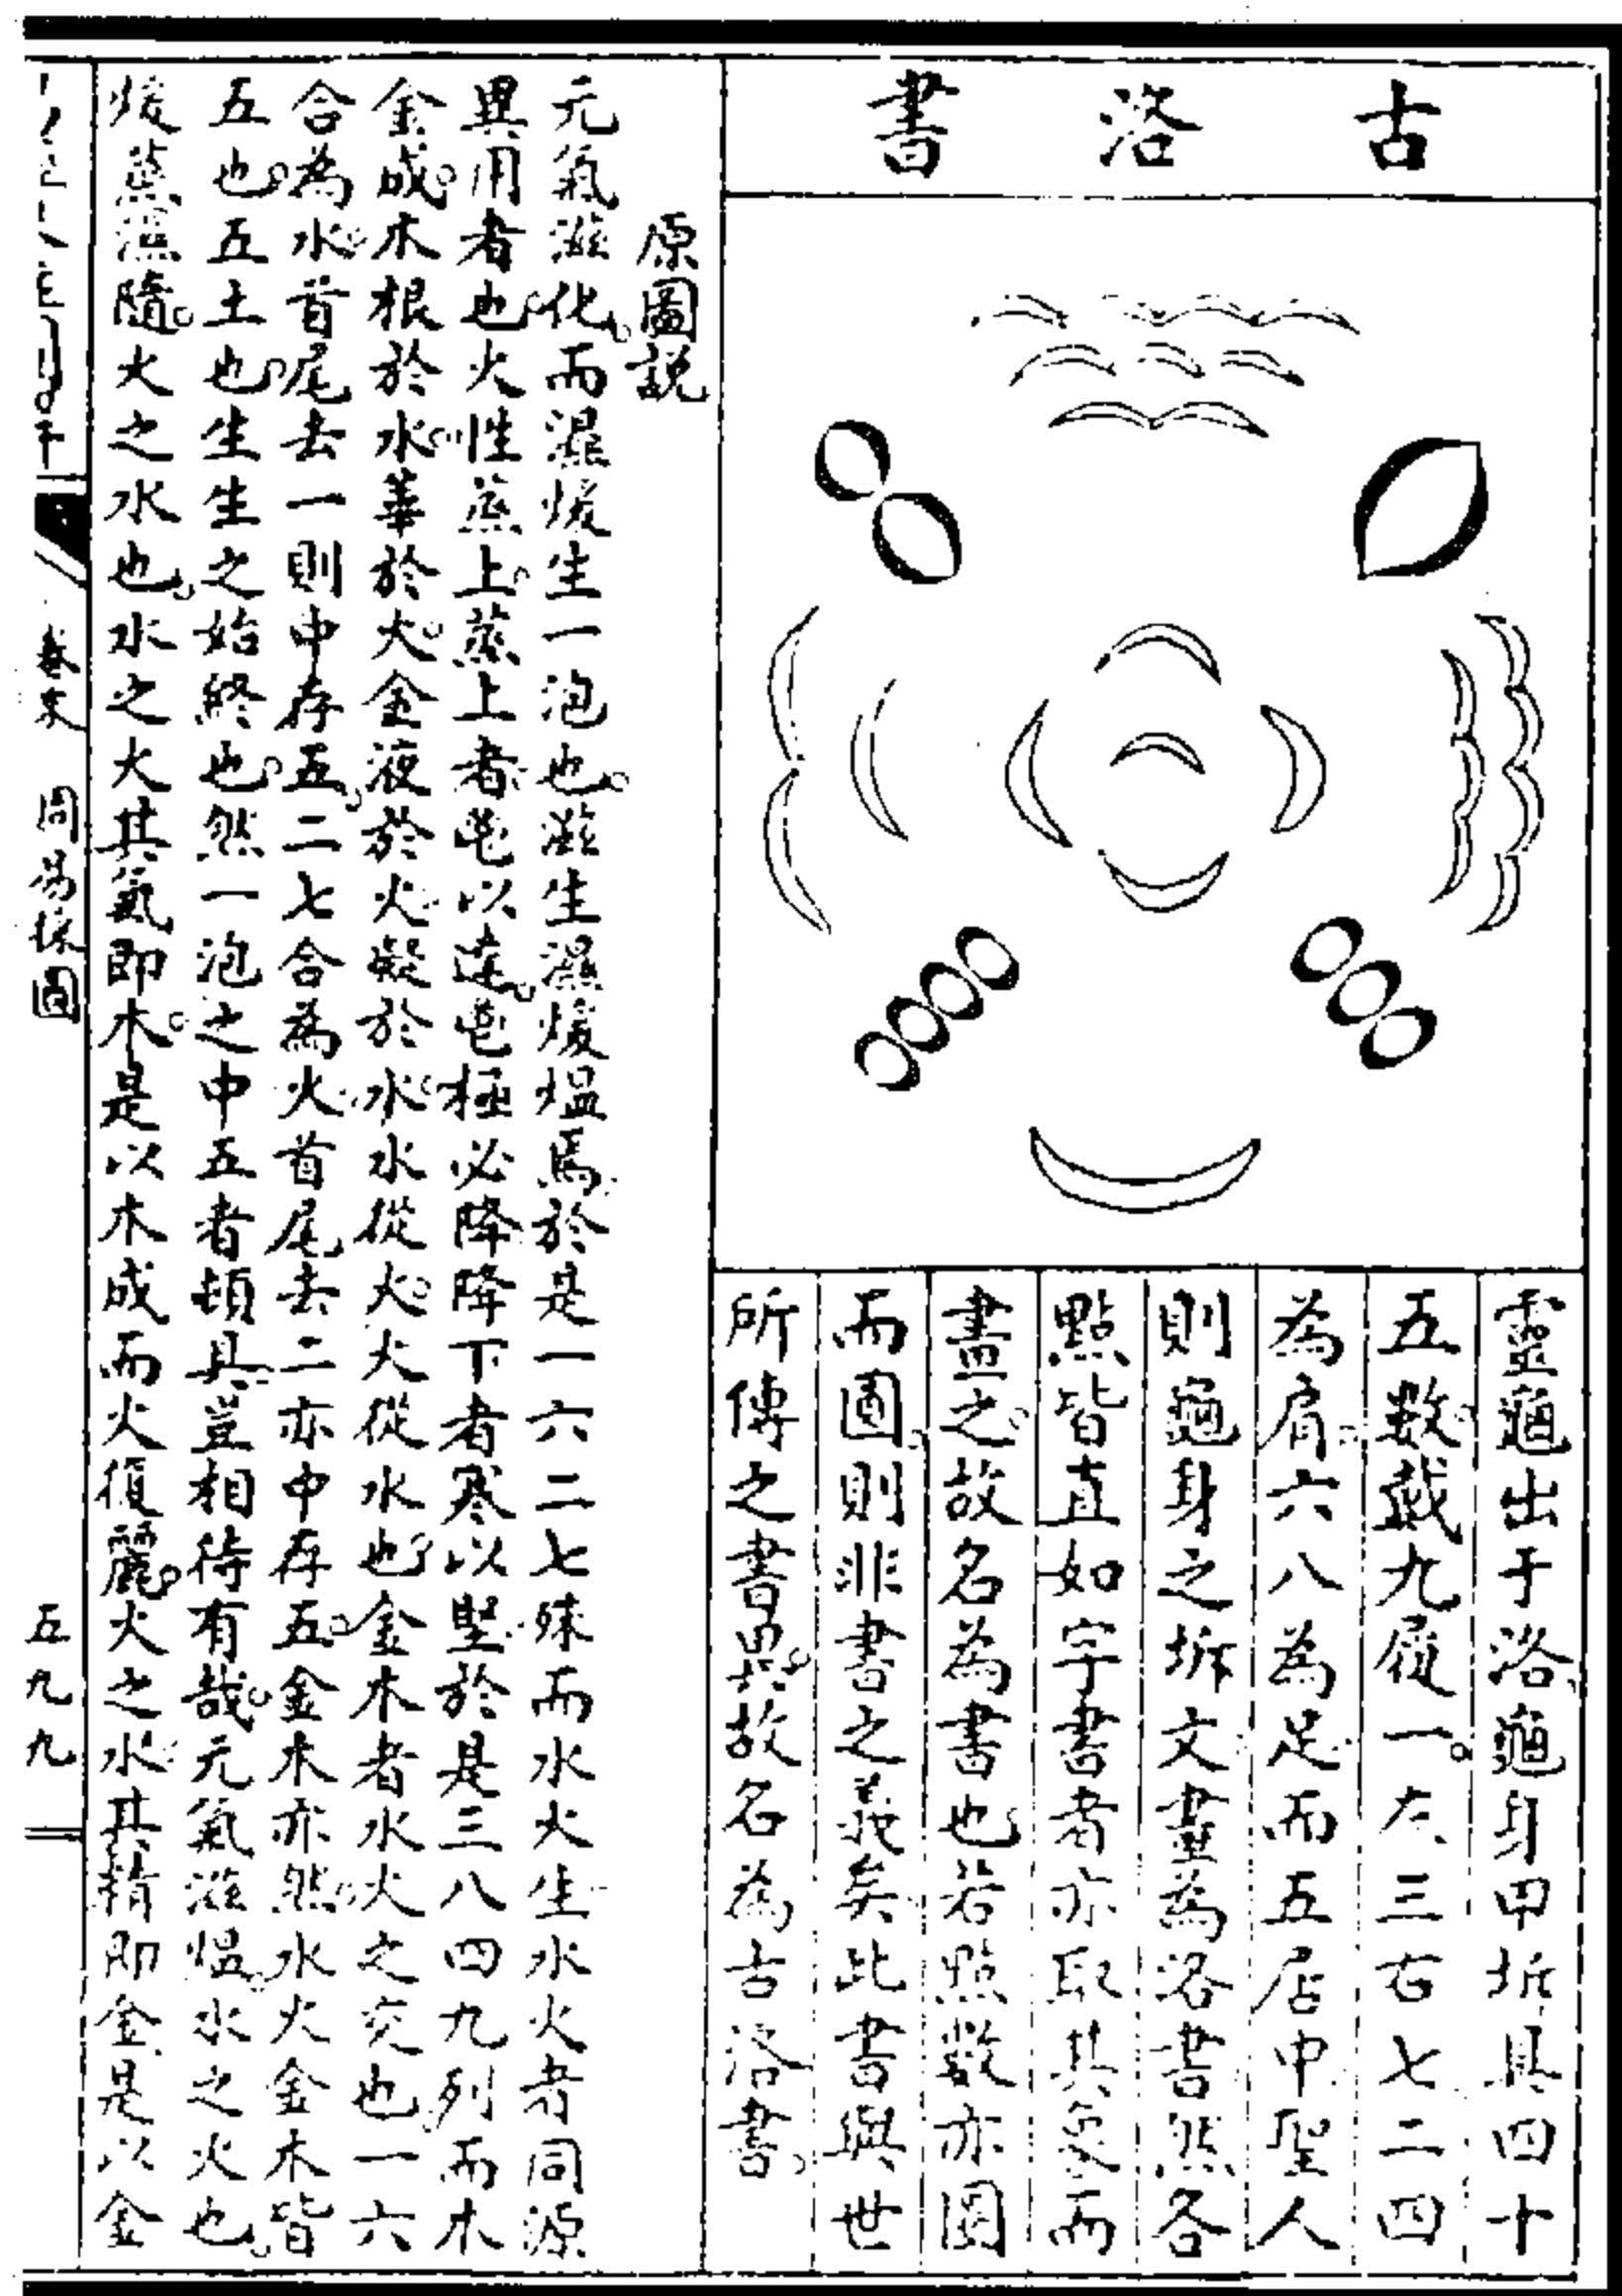 古洛書
靈龜出于洛龜身甲坼具四十
五數戴九履一。左三右七二四
為肩。六八為足而五居中聖人
則龜身之坼文畫為洛書然各
點皆直如字書者亦取其
而
畫之。故名為書也若點數亦圓
而圖。則非書之義矣此書與世
所傳之書異。故名為古洛書。
原圖說
元氣滋化。而濕煖生一泡也。滋生濕煖熅焉於是一六二七殊而水火生水火者同源
異用者也。火性蒸上。蒸上者
以達。
極必降降下者寒以堅於是三八四九列而木
金成。木根於水。華於火。金液於火。凝於水。水從火。火從水也。金木者水火之交也。一六
合為水。首尾去一則中存五。二七合為火。首尾去二亦中存五。金木亦然。水火金木皆
五也。五土也。生生之始終也。然一泡之中五者頓具豈相待有哉。元氣滋熅。水之火也。
煖蒸濕隨。火之水也。水之火其氣即木。是以木成而火復麗。火之水。其精即金是以金
卷末 周易採圖
五九九